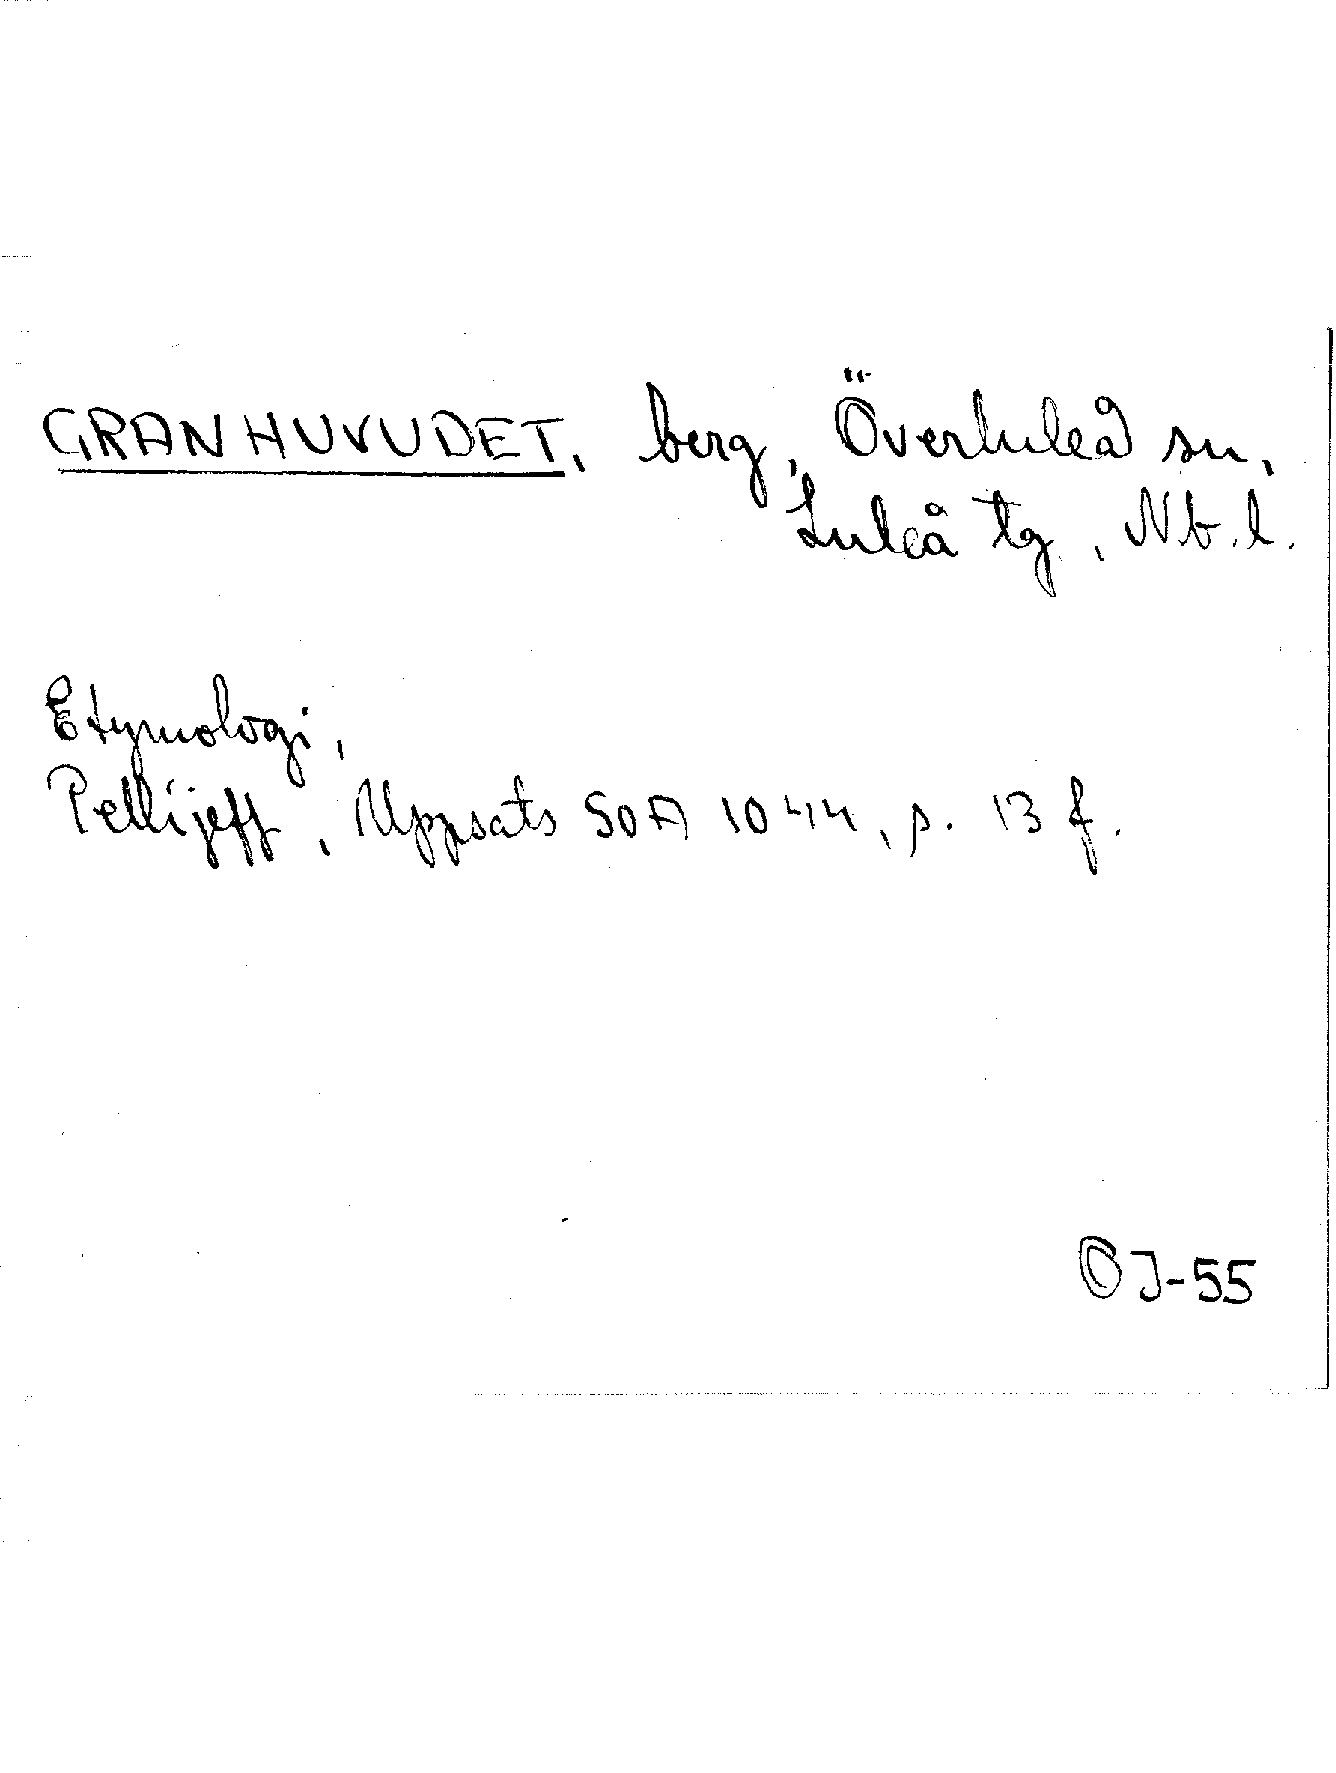 GRANHUVUDET, berg, Överluleå sn,
Luleå tg, Nb.l.
Etymologi,
Pellijeff, Uppsats SOA 1044, s. 13 f.
OJ-55